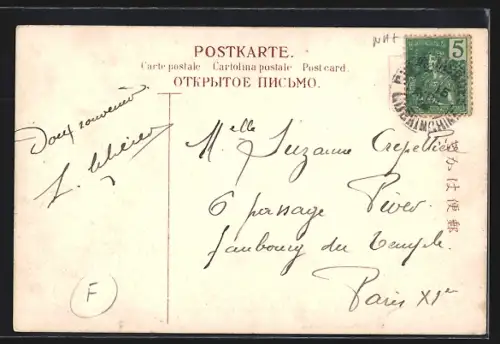 POSTKARTE.
Carte postale Cartolina postale Post card
ОТКРЫТОЕ ПИСЬМО.
5
COCHINCHINE
Doux souvenir
Melle Suzanne Crepellier
6 passage Piver
faubourg du Temple
Paris XIe
便郵
F